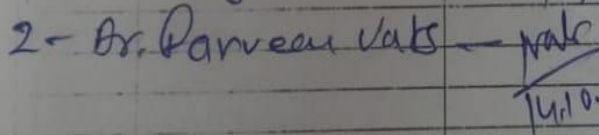 2- Dr. Parveen Vats —
14.10.